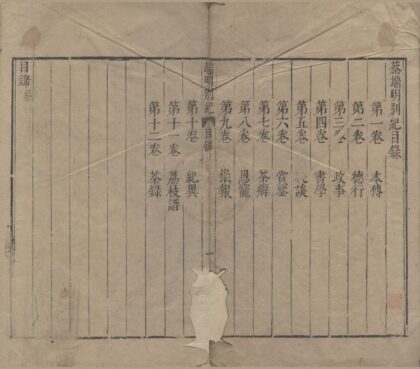 蔡端明別紀目錄
第一卷 本傳
第二卷 德行
第三卷 政事
第四卷 書學
第五卷 談
第六卷 賞鑒
第七卷 茶癖
第八卷 恩寵
第九卷 崇報
端明別紀 目錄 一
第十卷 紀異
第十一卷 荔枝譜
第十二卷 茶錄
目錄終